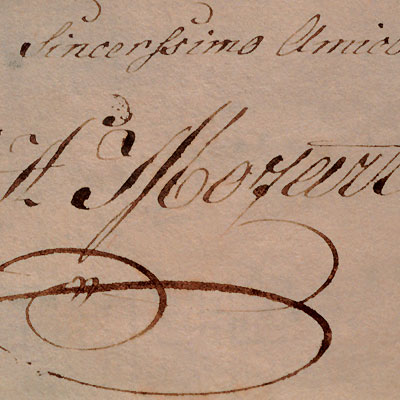 Sincerſsimo Amico
A Mozart